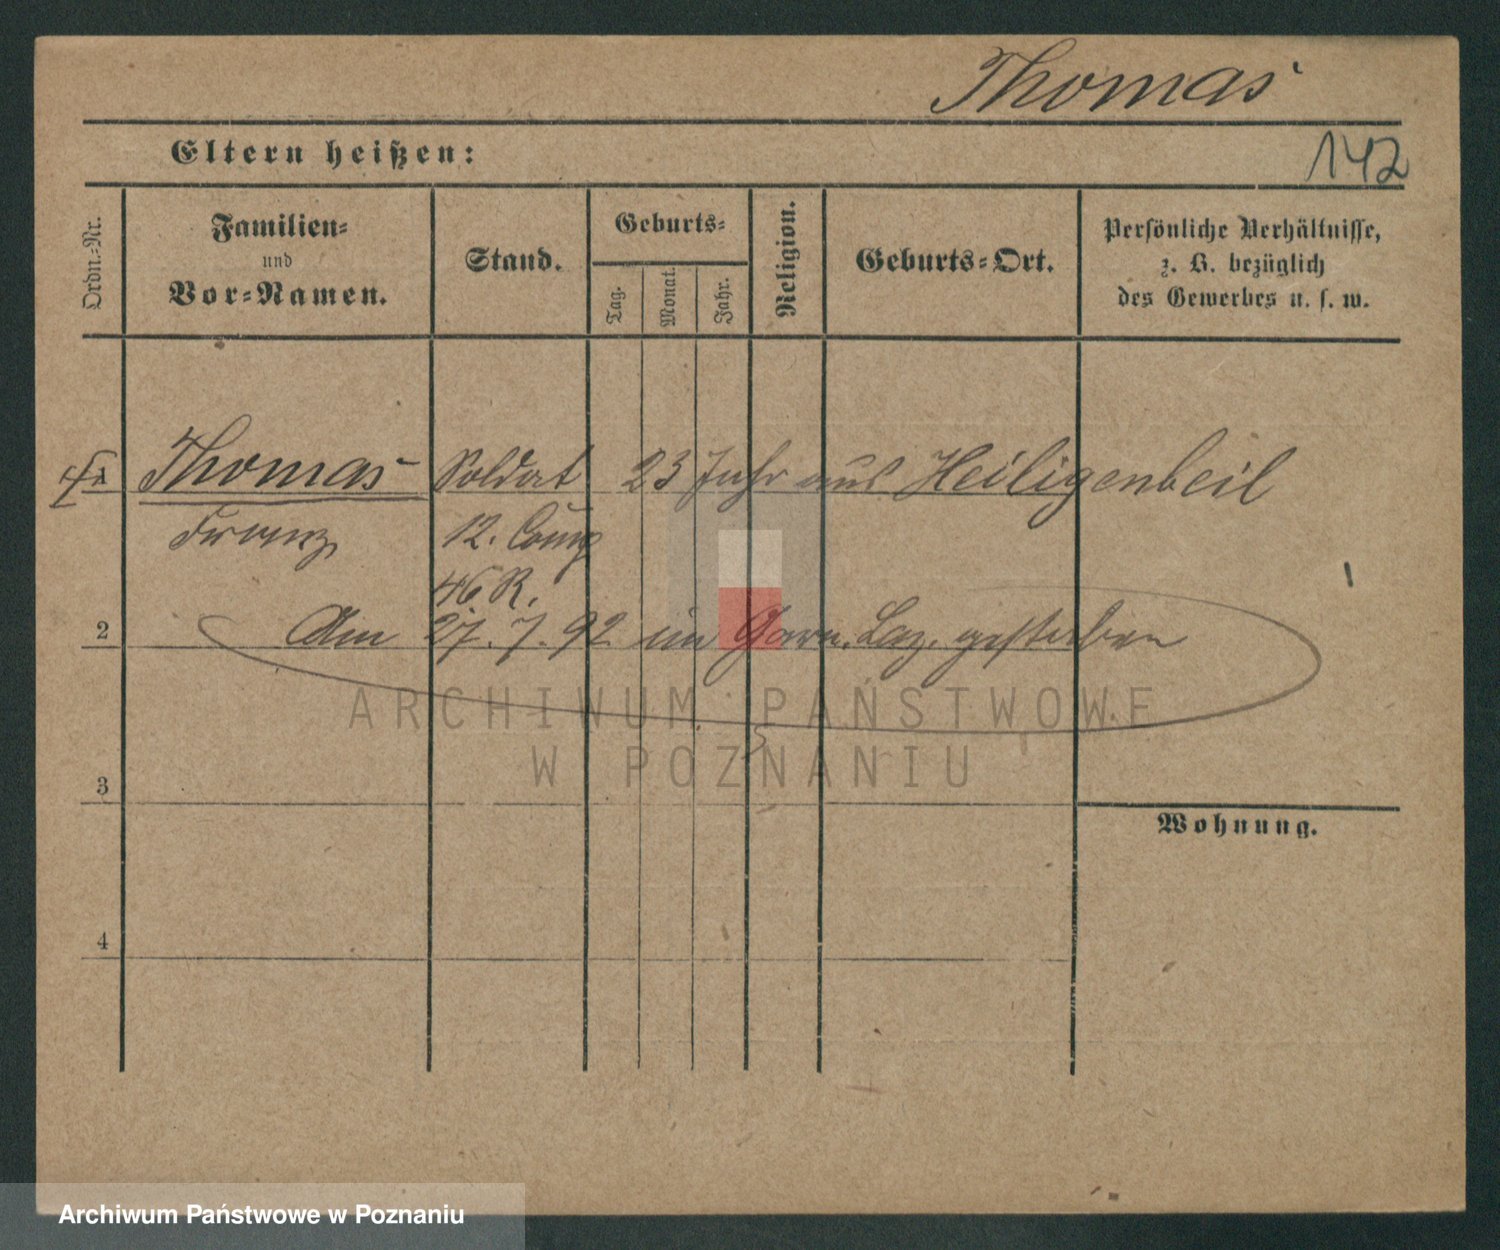 Thomas
Eltern heißen:
142
Ordn.-Nr.
Familien-
und
Vor-Namen.
Stand.
Geburts-
Tag.
Monat.
Jahr.
Religion.
Geburts-Ort.
Persönliche Verhältnisse,
z. B. bezüglich
des Gewerbes u. s. w.
1 Thomas Soldat 23 Jahr aus Heiligenbeil
Franz 12. Comp
46 R.
2 Am 27.7.92 im Garn. Laz. gestorben
ARCHIWUM PAŃSTWOWE
W POZNANIU
3
Wohnung.
4
Archiwum Państwowe w Poznaniu